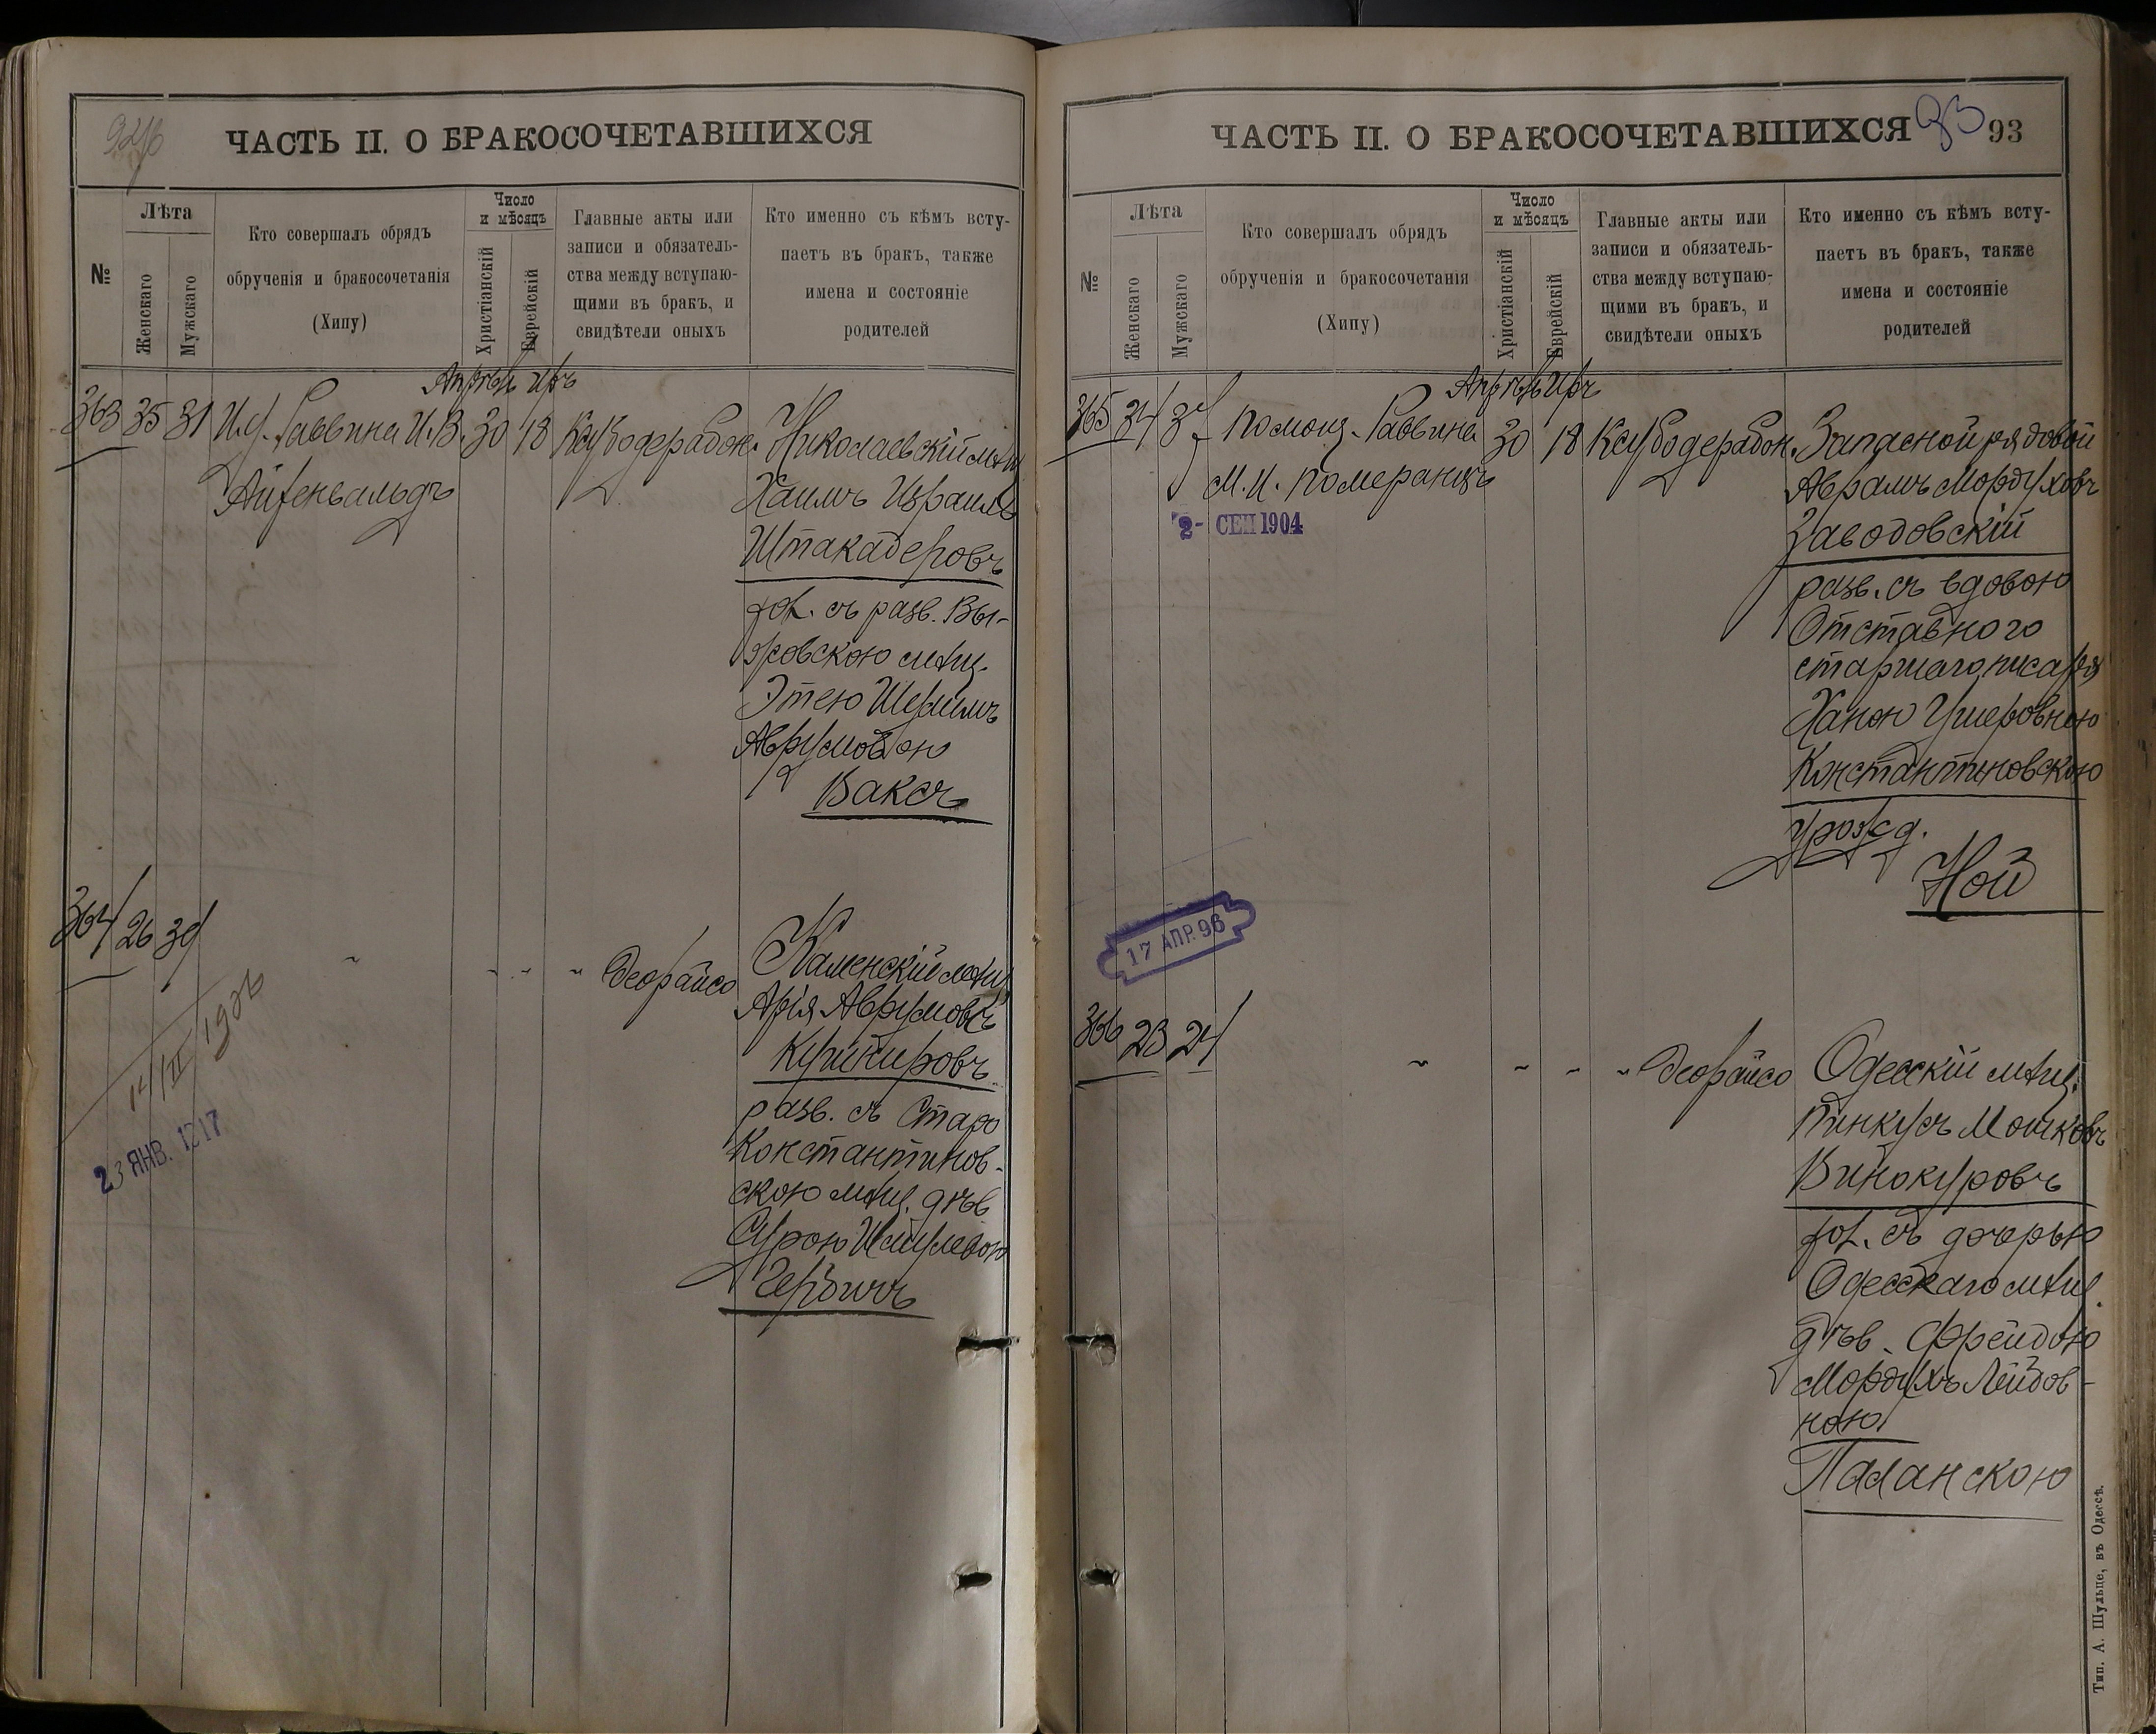 ЧАСТЬ II. О БРАКОСОЧЕТАВШИХСЯ
№
Лѣта
Женскаго
Мужскаго
Кто совершалъ обрядъ
обрученія и бракосочетанія
(Хипу)
Число
и мѣсяцъ
Христіанскій
Еврейскій
Главные акты или
записи и обязатель-
ства между вступаю-
щими въ бракъ, и
свидѣтели оныхъ
Кто именно съ кѣмъ всту-
паетъ въ бракъ, также
имена и состояніе
родителей
Апрѣль Иръ
363 35 31 И.д. Раввина И.В. 30 18 Ксубодерабон. Николаевскій мѣщ.
Айзенвальдъ
Хаимъ Израилъ
Штакадеровъ
хол. съ разв. Вы-
жовскою мѣщ.
Этею
Аврумовою
Ваксъ
364 26 39 Деорайсо Каменскій мѣщ.
Арія Аврумовъ
Кушнировъ
разв. съ Старо
Константинов-
скою мѣщ. дѣв
Сурою
23 ЯНВ. 1917
ЧАСТЬ II. О БРАКОСОЧЕТАВШИХСЯ 93
93
№
Лѣта
Женскаго
Мужскаго
Кто совершалъ обрядъ
обрученія и бракосочетанія
(Хипу)
Число
и мѣсяцъ
Христіанскій
Еврейскій
Главные акты или
записи и обязатель-
ства между вступаю-
щими въ бракъ, и
свидѣтели оныхъ
Кто именно съ кѣмъ всту-
паетъ въ бракъ, также
имена и состояніе
родителей
Апрѣль Иръ
365 34 37 Помощ. Раввина 30 18 Ксубодерабон. Запасной рядовой
М.И. Померанцъ
2- СЕП 1904
Аврамъ Мордуховъ
Заводовскій
разв. съ вдовою
Отставного
старшаго писаря
Ханою Ушеровною
Константиновскою
урожд.
Ной
17 АПР. 96
366 23 24 Деорайсо Одесскій мѣщ.
Пинкусъ Мошковъ
Винокуровъ
хол. съ дочерью
Одесскаго мѣщ.
дѣв. Фрейдою
Мордухъ Лейзов-
ною
Паланскою
Тип. А. Шульце, въ Одессѣ.